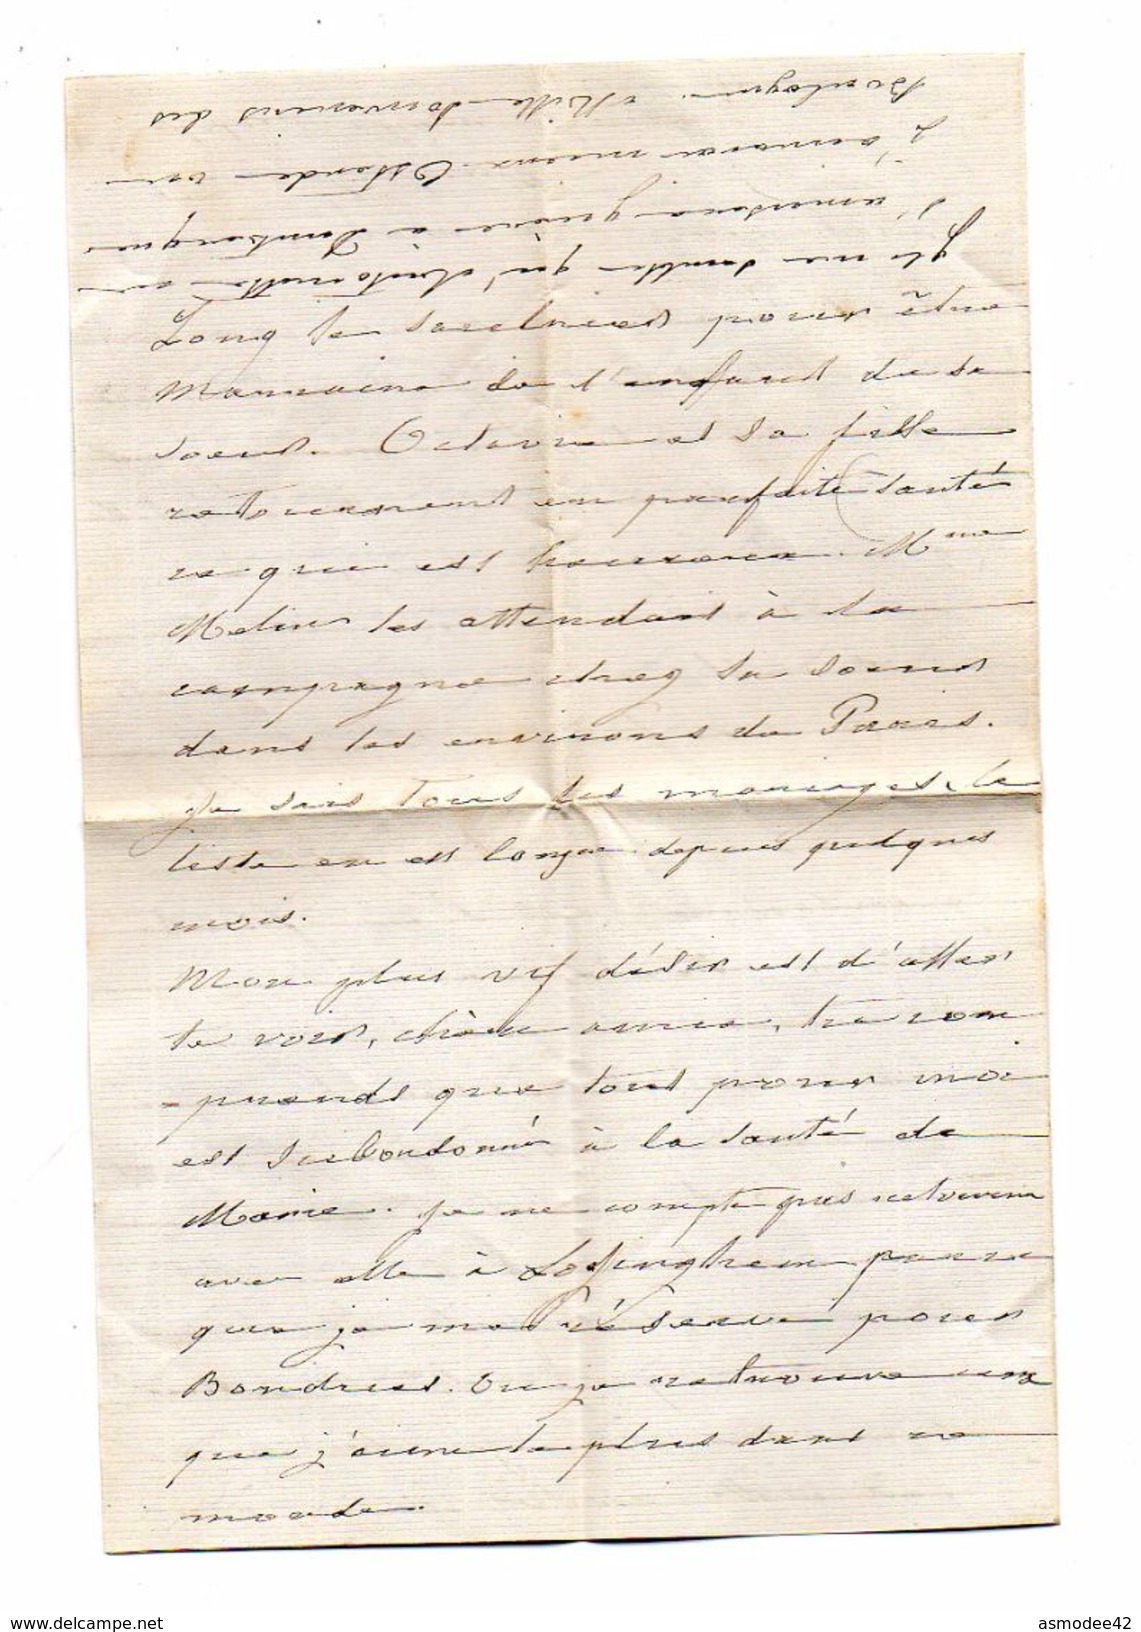 Long le sacrines pour être
Marraine de l'enfant de sa
soeur. Octavie et sa fille
retournent en parfaite santé
ce qui est heureux. Mme
Melin les attendait à la
campagne chez sa soeur
dans les environs de Paris.
Je sais tous les mariages, la
liste en est longue depuis quelques
mois.
Mon plus vif désir est d'aller
te voir, chère amie, tu com
-prends que tout pour moi
est subordonné à la santé de
Marie. Je ne compte pas retourner
avec elle à Lozinghem parce
que je me réserve pour
Bondues. Ou je retrouve ceux
que j'aime le plus dans ce
monde.
Il me semble qu'Antoinette ne
s'amusera guère à Dunkerque
j'aimerai mieux Ostende ou
Boulogne. Mille souvenirs des
www.delcampe.net
asmodee42